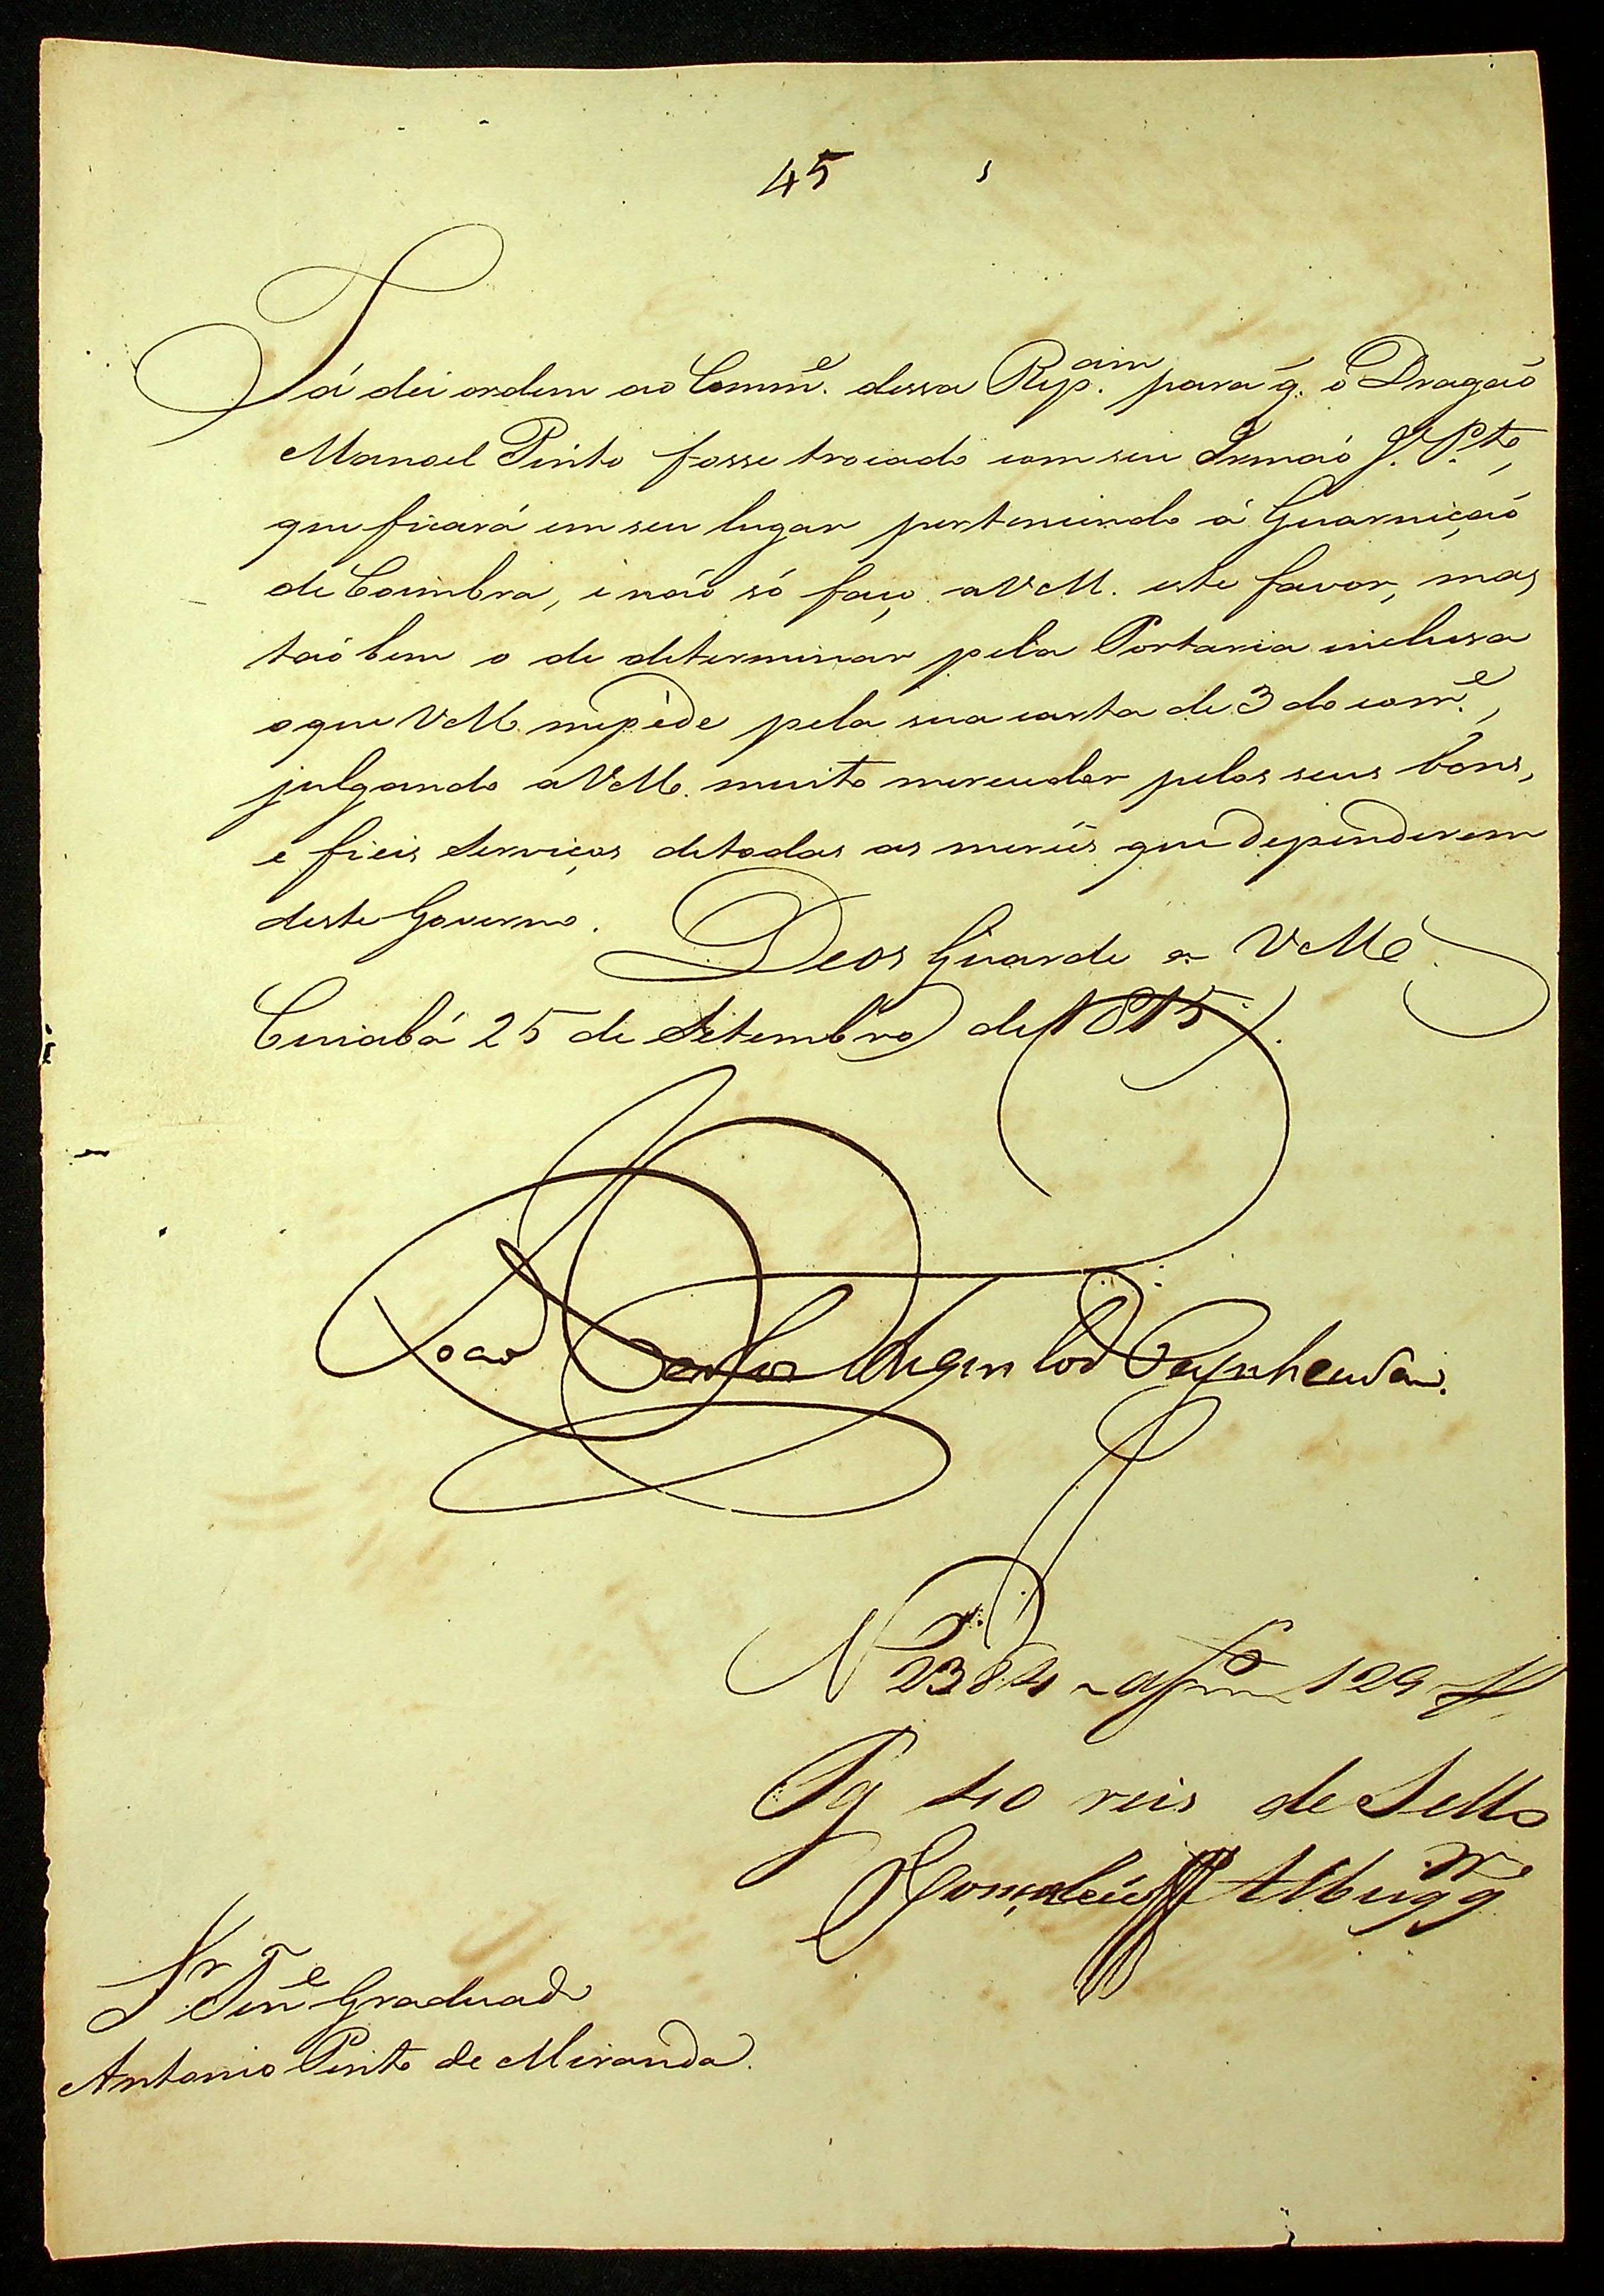 45
Já dei ordem ao Comm.e dessa Rep.am para q. o Dragaõ
Manoel Pinto fosse trocado com seu Irmaõ J. P.to,
que ficará em seu lugar pertencendo á Guarniçaõ
de Coimbra, e naõ só faço a VM. este favor, mas
taõ bem o de determinar pela Portaria incluza
o que VM. me péde pela sua carta de 3 do corr.e,
julgando a VM. muito merecedor pelos seus bons,
e fieis Serviços de todas as mercês que dependerem
deste Governo. Deos Guarde a VMe.
Cuiabá 25 de Setembro de 1815.
Joaõ Carlos Augusto d'Oeynhausen.
N 2384 129
Pg 40 reis de Sello
Gomes Albuq.e
Sr. Ten.e Graduado
Antonio Pinto de Miranda.